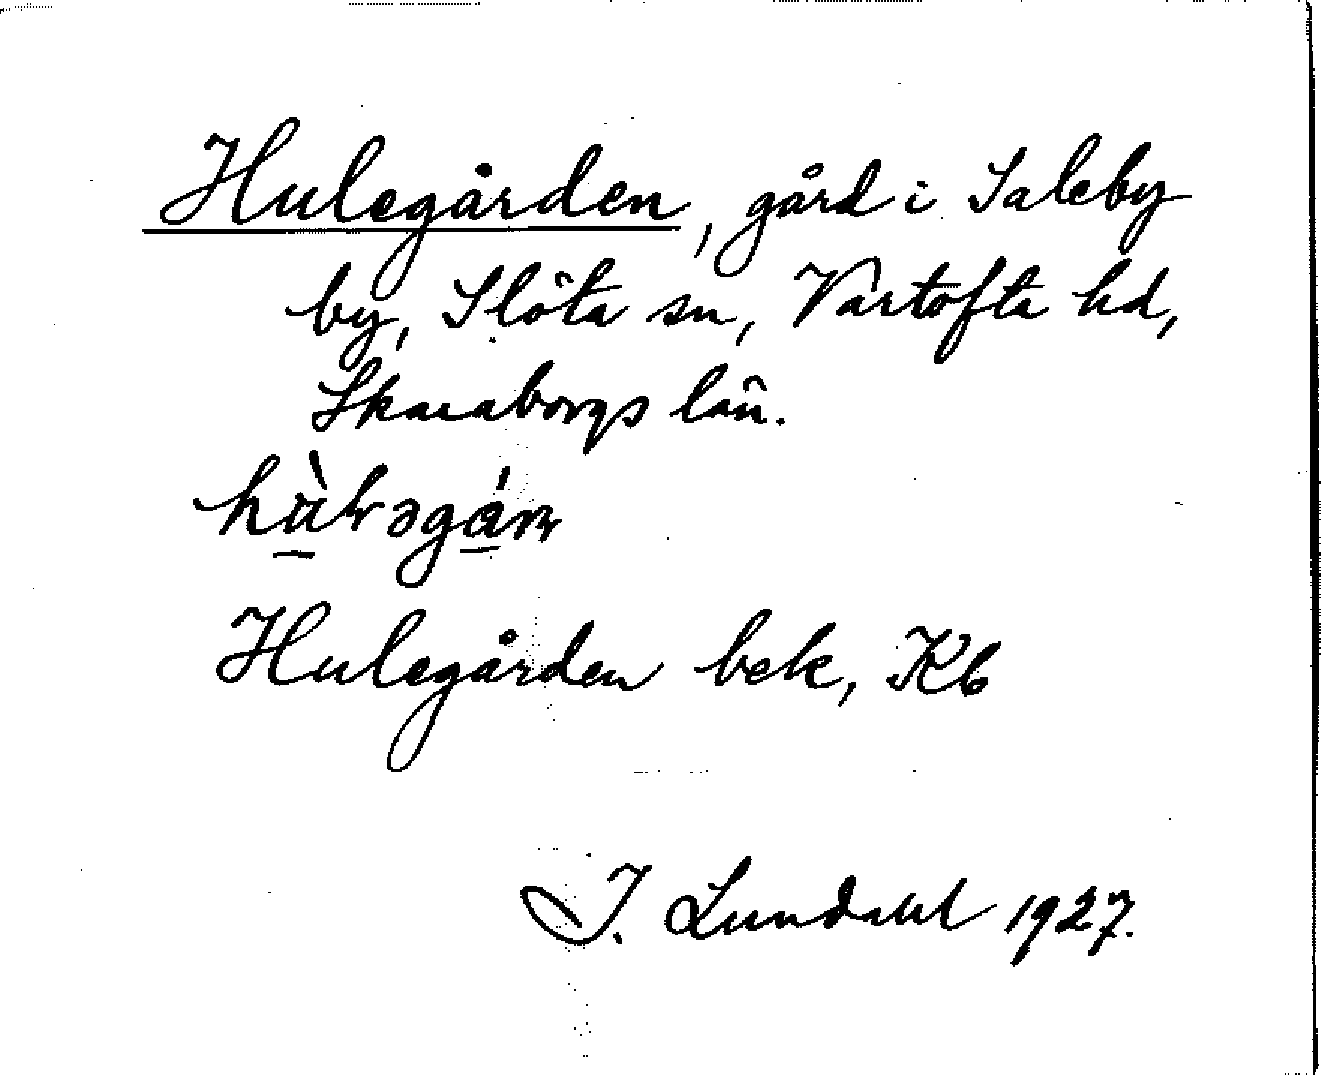 Hulegården, gård i Saleby
by, Slöta sn, Vartofta hd,
Skaraborgs län.
Hulegården bek, Kb
I. Lundahl 1927.